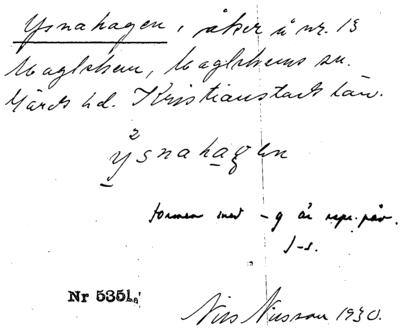 Ysnahagen, åker å nr. 13
Maglehem, Maglehems sn.
Gärds hd. Kristianstads län.
2
ysnahagen
formen med -g är repr. påv.
J-s.
Nr 5351a
Nils Nilsson 1930.